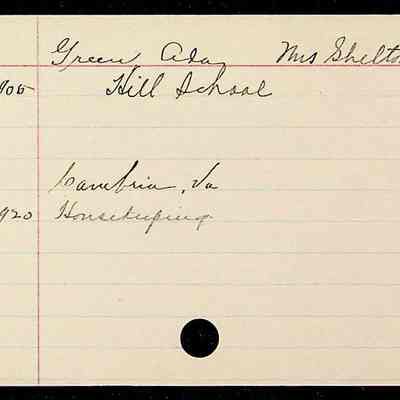 Green Ada Mrs Shelto
905 Hill School
Cambria, Va
920 Housekeeping